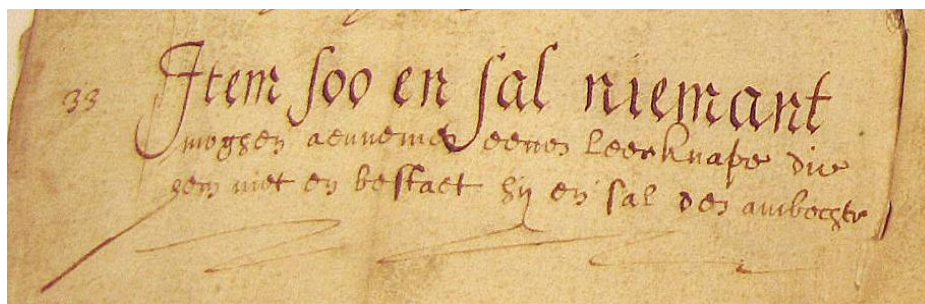 33 Item soo en sal niemant
moghen aennemen eenen leerknape die
hem niet en bestaet hij en sal den ambochte